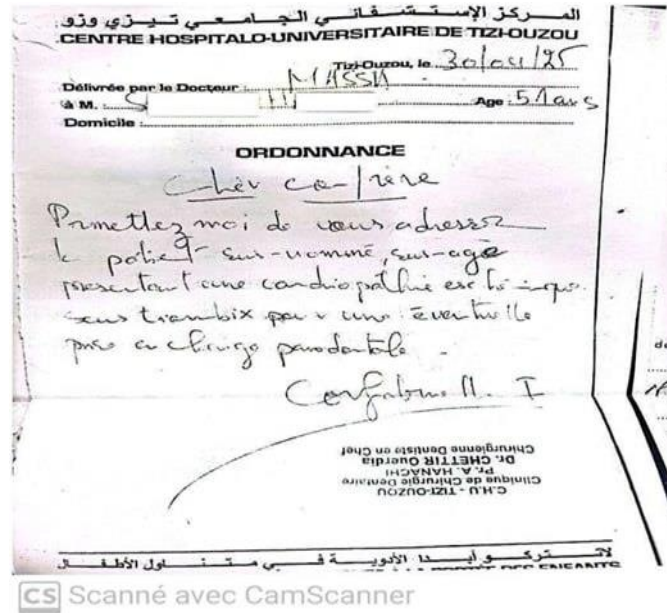 المركز الإستشفائي الجامعي تيزي وزو
CENTRE HOSPITALO-UNIVERSITAIRE DE TIZI-OUZOU
Tizi-Ouzou, le 30/04/25
Délivrée par le Docteur : MASSIA
à M. : S Age : 51 ans
Domicile :
ORDONNANCE
Cher confrère
Permettez moi de vous adresser
le patient sus-nommé, sus-agé
présentant une cardiopathie
sous pour une éventuelle
prise en charge parodontale.
C.H.U - TIZI-OUZOU
Clinique de Chirurgie Dentaire
Pr. A. HANACHI
Dr. CHETTIR Ouerdia
Chirurgienne Dentiste en Chef
لاتتركوا أبدا الأدوية في متناول الأطفال
DES ENFANTS
CS Scanné avec CamScanner